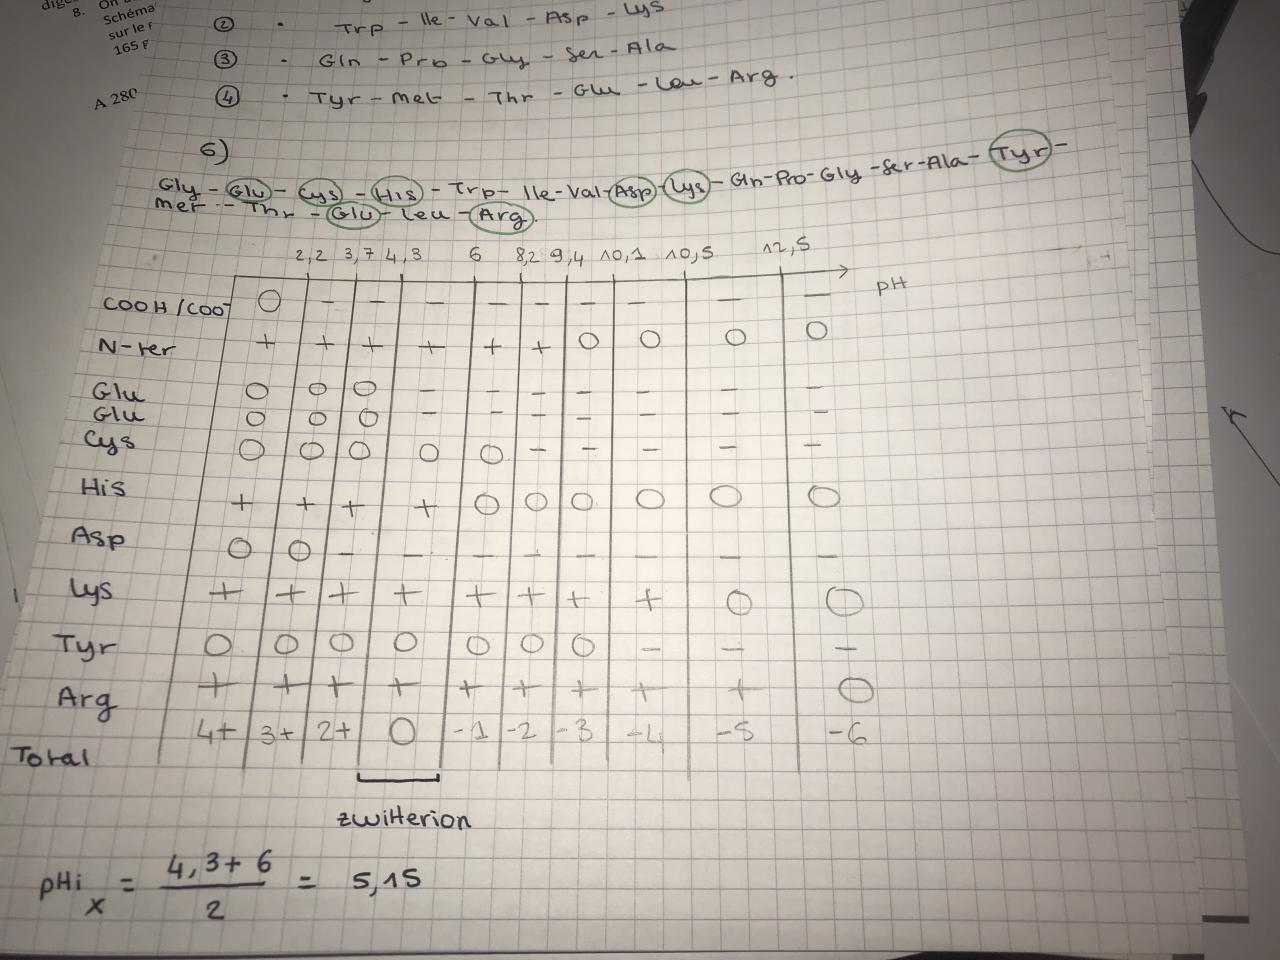 8. On
Schéma
sur le r
165 F
A 280
② • Trp - Ile - Val - Asp - Lys
③ • Gln - Pro - Gly - Ser - Ala
④ • Tyr - Met - Thr - Glu - Leu - Arg.
6)
Gly - Glu - Cys - His - Trp - Ile - Val - Asp - Lys - Gln - Pro - Gly - Ser - Ala - Tyr -
Met - Thr - Glu - Leu - Arg.
2,2 3,7 4,3 6 8,2 9,4 10,1 10,5 12,5
pH
COOH/COO⁻ O - - - - - - - - -
N-ter + + + + + + O O O O
Glu O O O - - - - - - -
Glu O O O - - - - - - -
Cys O O O O O - - - - -
His + + + + O O O O O O
Asp O O - - - - - - - -
Lys + + + + + + + + O O
Tyr O O O O O O O - - -
Arg + + + + + + + + + O
Total 4+ 3+ 2+ O -1 -2 -3 -4 -5 -6
zwitterion
pHi x = 4,3 + 6 / 2 = 5,15